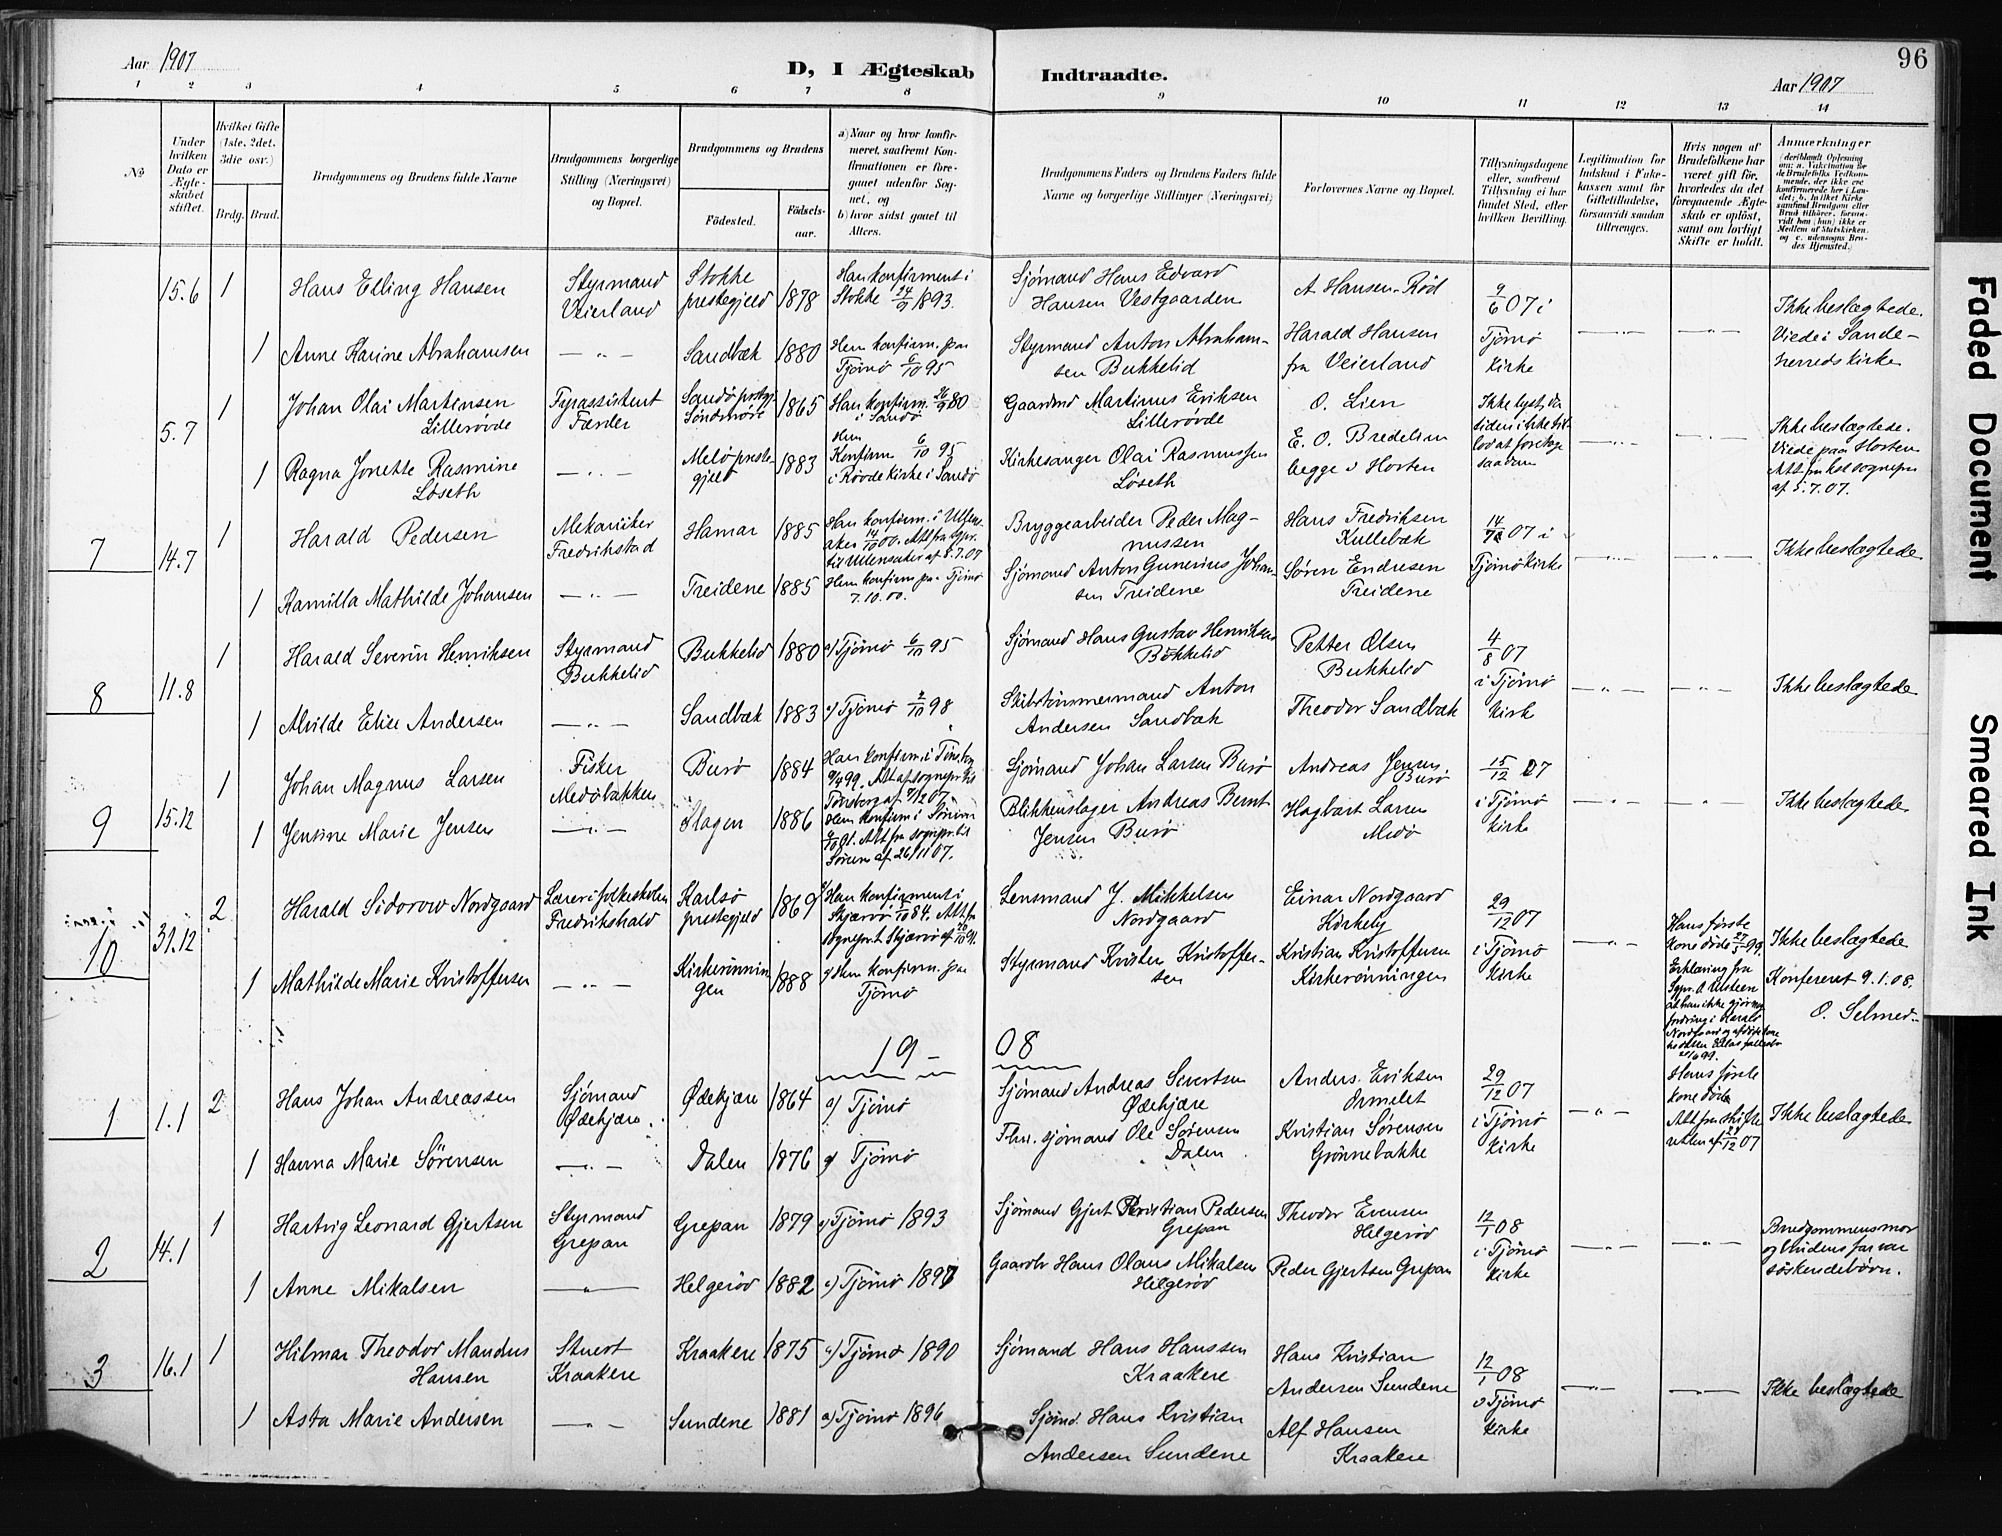 Aar 1907
D, I Ægteskab Indtraadte.
Aar 1907
96
1 2 3 4 5 6 7 8 9 10 11 12 13 14
No
Under hvilken Dato er Ægteskabet stiftet.
Hvilket Gifte (1ste, 2det, 3die osv.)
Brdg. Brud.
Brudgommens og Brudens fulde Navne
Brudgommens borgerlige Stilling (Næringsvei) og Bopæl.
Brudgommens og Brudens
Fødested. Fødselsaar.
a) Naar og hvor konfirmeret, saafremt Konfirmationen er foregaaet udenfor Sognet, og
b) hvor sidst gaaet til Alters.
Brudgommens Faders og Brudens Faders fulde Navne og borgerlige Stillinger (Næringsvei)
Forlovernes Navne og Bopæl.
Tillysningsdagene eller, saafremt Tillysning ei har fundet Sted, efter hvilken Bevilling.
Legitimation for Indskud i Enkekassen samt for Giftetilladelse, forsaavidt saadan tiltrænges.
Hvis nogen af Brudefolkene har været gift før, hvorledes da det foregaaende Ægteskab er opløst, samt om lovligt Skifte er holdt.
Anmærkninger
15.6 1 Hans Elling Hansen Styrmand Veierland Stokke prestegjeld 1878 Han konfirment i Stokke 24/9 1893. Sjømand Hans Edvard Hansen Vestgaarden A Hansen-Rød 9/6 07 i Tjømø Kirke Ikke beslægtede. Viede i Sandeherreds kirke
1 Anne Karine Abrahamsen — " — Sandbæk 1880 Hun konfirm. paa Tjømø 6/10 95 Styrmand Anton Abrahamsen Bukkelid Harald Hansen fra Veierland
5.7 1 Johan Olai Martinsen Lillerøvde Fyrassistent Færder Sandø prstgj. Søndmøre 1865 Han konfirm. 80 i Sandø Gaardmd Martinus Eriksen Lillerøvde O. Lien Ikke lyst, da Ikke beslægtede. Viede paa Horten af 5.7.07.
1 Ragna Jonette Rasmine Løseth — " — Melø prestegjeld 1883 Hun Konfirm 6/10 95 i Røvde Kirke i Sandø Kirkesanger Olai Rasmussen Løseth E. O. Bredelien begge v Horten
7 14.7 1 Harald Pedersen Mekaniker Fredrikstad Hamar 1885 Han konfirm. i Ullensaker 14/10 00. Att fra spr. til Ullensaker af 5.7.07 Bryggearbeider Peder Magnussen Hans Fredriksen Kullebæk 14/7 07 i Tjømø kirke Ikke beslægtede
1 Kamilla Mathilde Johansen — " — Treidene 1885 Hun konfirm paa Tjømø 7.10.00. Sjømand Anton Gunerius Johansen Treidene Søren Endresen Treidene
8 11.8 1 Harald Severin Henriksen Styrmand Bukkelid Bukkelid 1880 a) Tjømø 6/10 95 Sjømand Hans Gustav Henriksen Bukkelid Petter Olsen Bukkelid 4/8 07 i Tjømø Kirk Ikke beslægtede
1 Alvilde Elise Andersen — " — Sandbæk 1883 a) Tjømø 2/10 98 Skibstømmermand Anton Andersen Sandbæk Theodor Sandbæk
9 15.12 1 Johan Magnus Larsen Fisker Medøbakken Burø 1884 Han konfirm. i Tønsberg 9/4 99. Att af sognepr. til Tønsberg af 9/12 07. Sjømand Johan Larsen Burø Andreas Jensen Burø 15/12 07 i Tjømø kirke Ikke beslægtede
1 Jensine Marie Jensen — " — Slagen 1886 Hun konfirm i Sørum 6/10 01. Att fra sognepr. til Sørum af 26/11 07. Blikkenslager Andreas Bernt Jensen Burø Hagbart Larsen Medø
10 31.12 2 Harald Sidorow Nordgaard Lærer i folkeskolen Fredrikshald Karlsø prestegjeld 1869 Han konfirment i Skjærvø 5/10 84. Att fra sognepr. t. Skjærvø af 26/10 91. Lensmand J. Mikkelsen Nordgaard Einar Nordgaard Kirkely 29/12 07 i Tjømø Kirke Hans første kone døde 27/5 99. Erklæring fra Ikke beslægtede Konfereret 9.1.08. O. Selmer
1 Mathilde Marie Kristoffersen — " — Kirkerønningen 1888 a) Hun konfirm. paa Tjømø Styrmand Kristen Kristoffersen Kristian Kristoffersen Kirkerønningen
19 — 08
1 1.1 2 Hans Johan Andreassen Sjømand Ødekjære Ødekjære 1864 a) Tjømø Sjømand Andreas Sivertsen Ødekjære Anders. Eriksen Ormelet 29/12 07 i Tjømø Kirke Hans første kone døde Att fra skifteretten af 27/12 07 Ikke beslægtede
1 Hanna Marie Sörensen — " — Dalen 1876 a) Tjømø Fhv. sjømand Ole Sørensen Dalen Kristian Sørensen Grønnebakke
2 14.1 1 Hartvig Leonard Gjertsen Styrmand Grepan Grepan 1879 a) Tjømø 1893 Sjømand Gjert Kristian Pedersen Grepan Theodor Evensen Helgerød 12/1 08 i Tjømø Kirke Brudgommens mor og brudens far var søskendebørn.
1 Anne Mikalsen — " — Helgerød 1882 a) Tjømø 1897 Gaardbr Hans Olaus Mikalsen Helgerød Peder Gjertsen Grepan
3 16.1 1 Hilmar Theodor Mandus Hansen Stuert Kraakere Kraakere 1875 a) Tjømø 1890 Sjømand Hans Hanssen Kraakere Hans Kristian Andersen Sundene 12/1 08 i Tjømø Kirke Ikke beslægtede
1 Asta Marie Andersen — " — Sundene 1881 a) Tjømø 1896 Sjømd. Hans Kristian Andersen Sundene Alf Hansen Kraakere
Faded Document
Smeared Ink